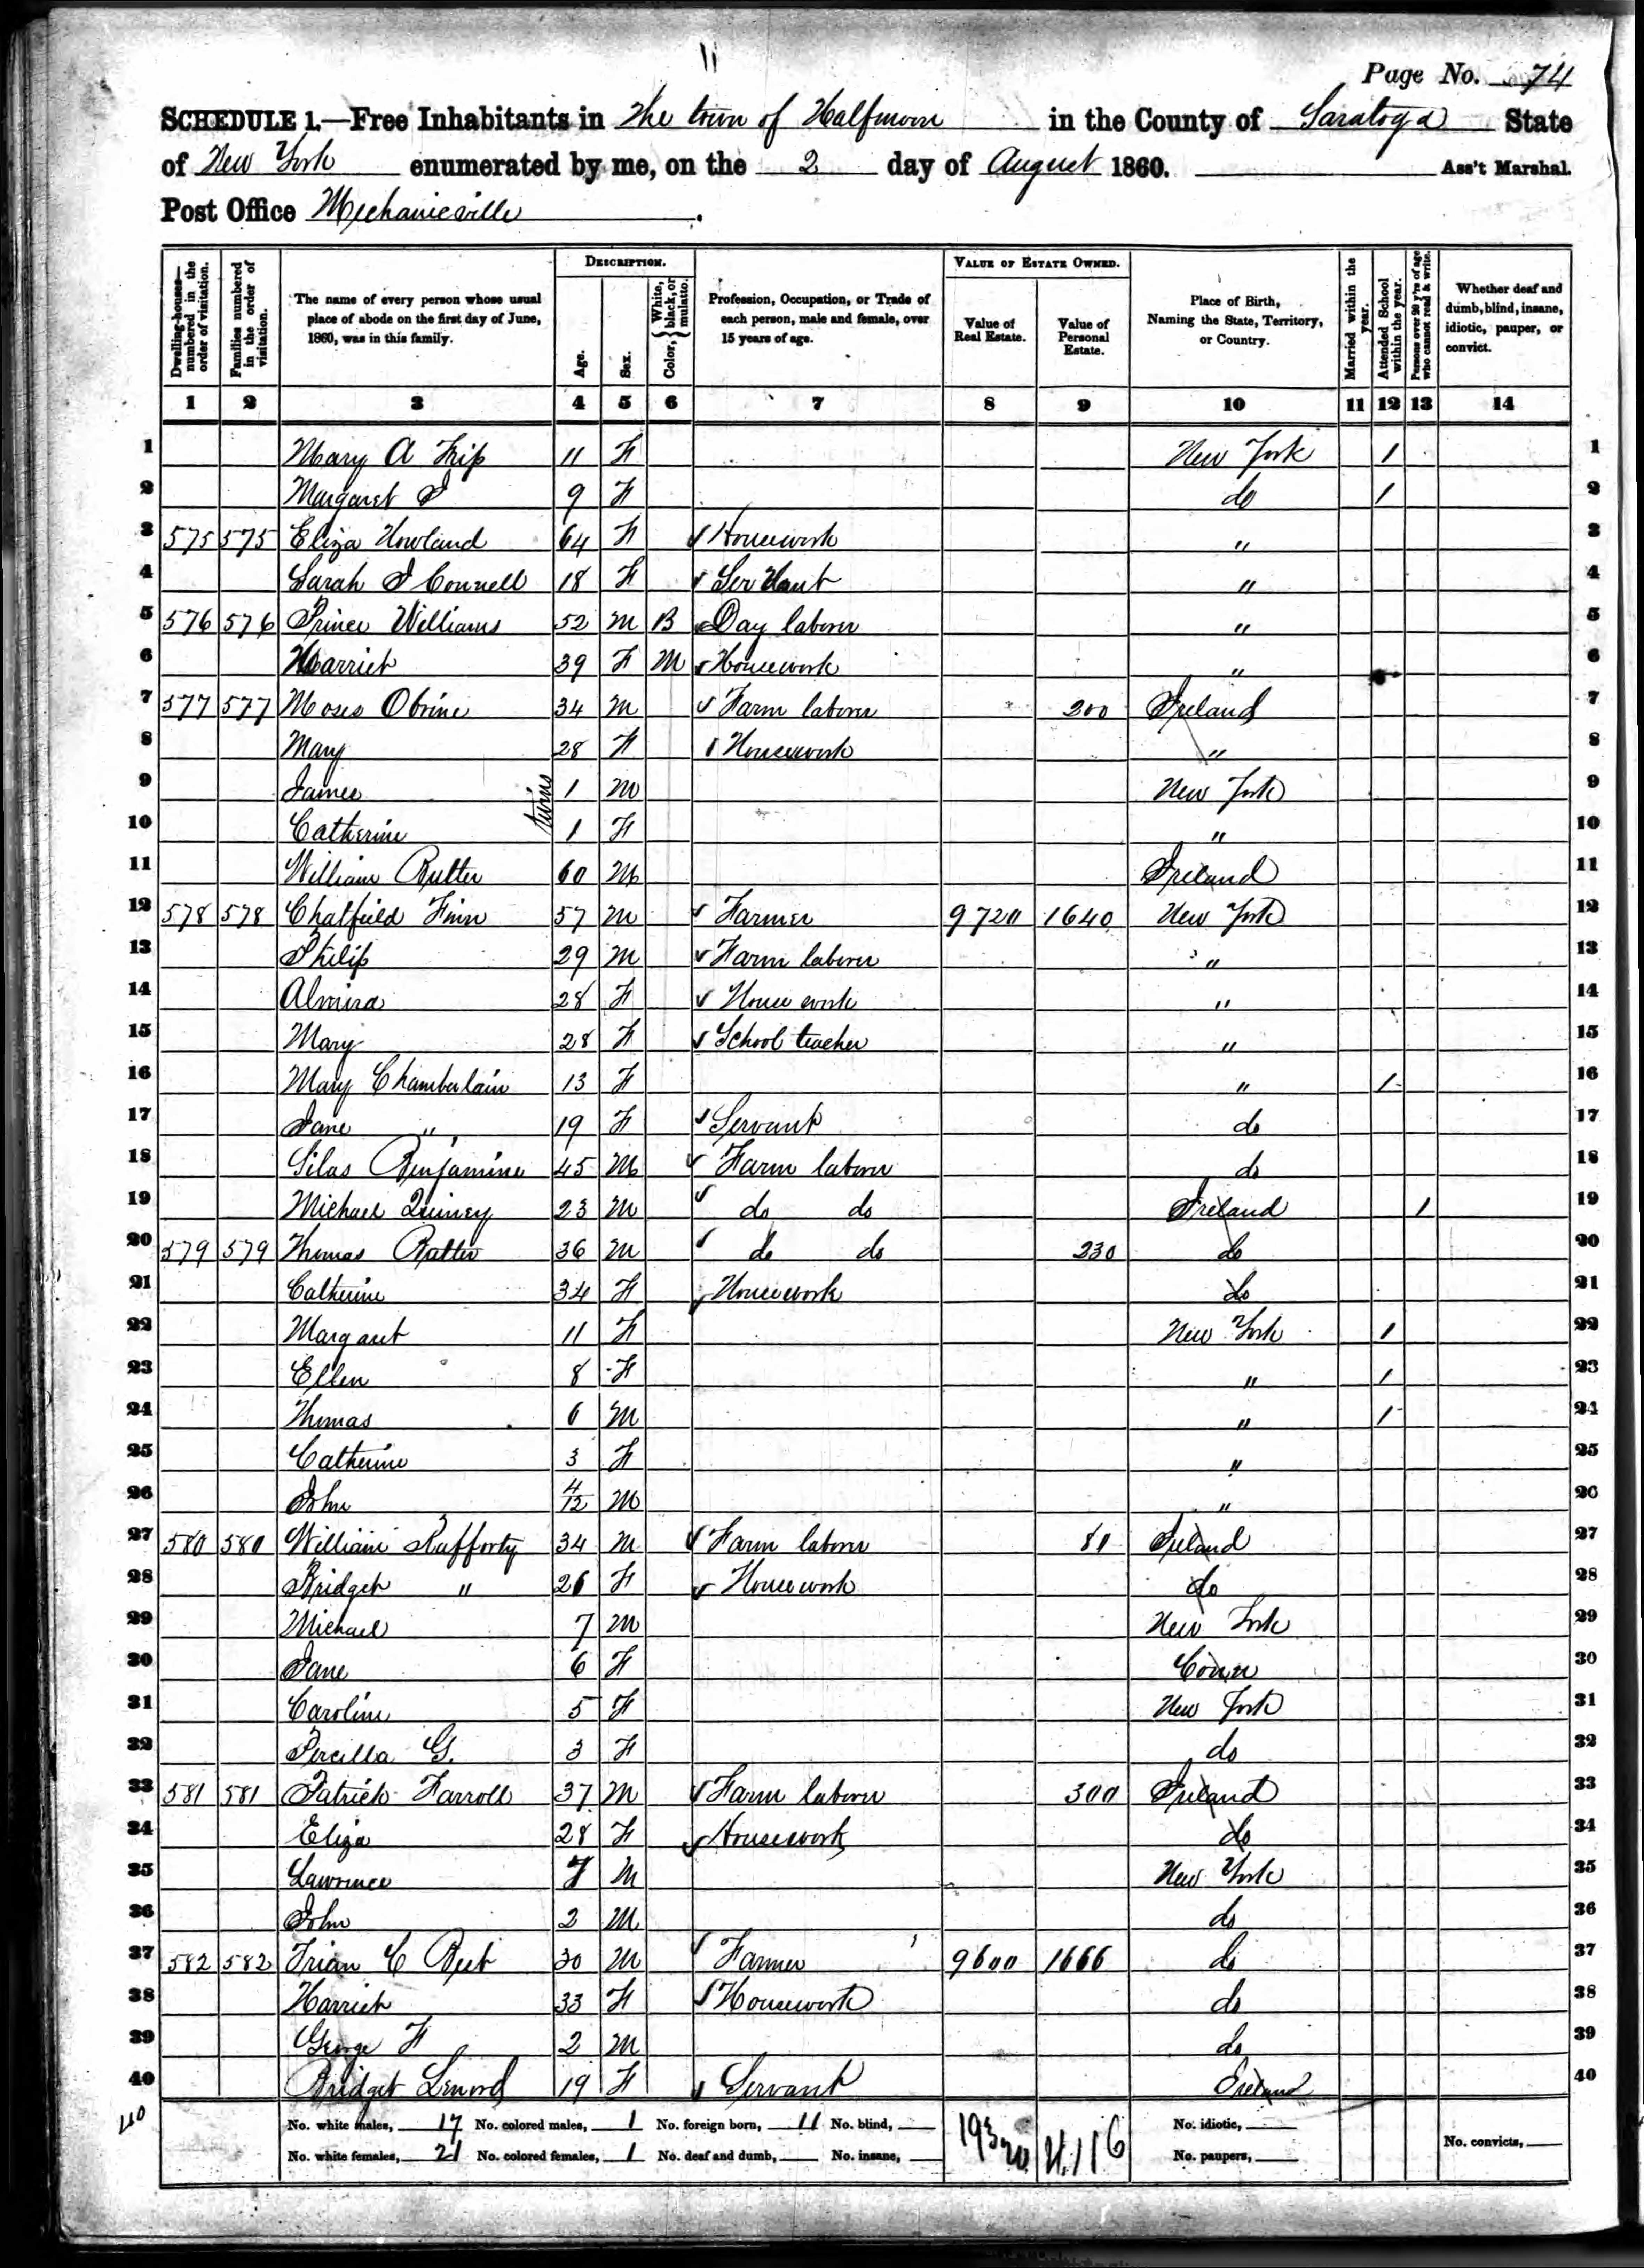 11
Page No. 74
SCHEDULE 1.—Free Inhabitants in The town of Halfmoon in the County of Saratoga State
of New York enumerated by me, on the 2 day of August 1860. Ass't Marshal.
Post Office Mechanicville.
Dwelling-houses—numbered in the order of visitation. Families numbered in the order of visitation. The name of every person whose usual place of abode on the first day of June, 1860, was in this family. DESCRIPTION. Age. Sex. Color, White, black, or mulatto. Profession, Occupation, or Trade of each person, male and female, over 15 years of age. VALUE OF ESTATE OWNED. Value of Real Estate. Value of Personal Estate. Place of Birth, Naming the State, Territory, or Country. Married within the year. Attended School within the year. Persons over 20 y'rs of age who cannot read & write. Whether deaf and dumb, blind, insane, idiotic, pauper, or convict.
1 2 3 4 5 6 7 8 9 10 11 12 13 14
1 Mary A Trip 11 F New York 1 1
2 Margaret J 9 F do 1 2
3 575 575 Eliza Howland 64 F Housework " 3
4 Sarah J Connell 18 F Servant " 4
5 576 576 Prince Williams 52 M B Day laborer " 5
6 Harriet 39 F M Housework " 6
7 577 577 Moses Obrine 34 M Farm laborer 200 Ireland 7
8 Mary 28 F Housework " 8
9 James twins 1 M New York 9
10 Catherine 1 F " 10
11 William Rutter 60 M Ireland 11
12 578 578 Chatfield Finn 57 M Farmer 9720 1640 New York 12
13 Philip 29 M Farm laborer " 13
14 Almira 28 F House work " 14
15 Mary 28 F School teacher " 15
16 Mary Chamberlain 13 F " 1 16
17 Jane " 19 F Servant do 17
18 Silas Benjamine 45 M Farm laborer do 18
19 Michael Quiney 23 M do do Ireland 1 19
20 579 579 Thomas Rutter 36 M do do 230 do 20
21 Catherine 34 F Housework do 21
22 Margaret 11 F New York 1 22
23 Ellen 8 F " 1 23
24 Thomas 6 M " 1 24
25 Catherine 3 F " 25
26 John 4/12 M " 26
27 580 580 William Rafforty 34 M Farm laborer 80 Ireland 27
28 Bridget " 26 F Housework do 28
29 Michael 7 M New York 29
30 Jane 6 F Conn 30
31 Caroline 5 F New York 31
32 Percilla G. 3 F do 32
33 581 581 Patrick Farroll 37 M Farm laborer 300 Ireland 33
34 Eliza 28 F Housework do 34
35 Lawrence 7 M New York 35
36 John 2 M do 36
37 582 582 C 30 M Farmer 9600 1666 do 37
38 Harriet 33 F Housework do 38
39 George F 2 M do 39
40 Bridget Lenord 19 F Servant Ireland 40
40 No. white males, 17 No. colored males, 1 No. foreign born, 11 No. blind, 19320 4,116 No. idiotic,
No. white females, 21 No. colored females, 1 No. deaf and dumb, No. insane, No. paupers, No. convicts,